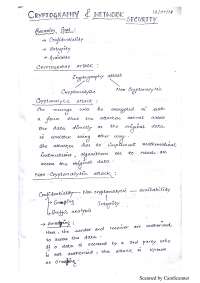 CRYPTOGRAPHY & NETWORK SECURITY
Security Goal :
→ Confidentiality
→ Integrity
→ Available
CRYPTOGRAPHIC ATTACK :
Cryptography attack
Cryptanalytic Non Cryptanalytic
Cryptanalytic attack :
The message will be encrypted in such
a form that the attacker cannot access
the data directly as the original data
is written using other way.
The attacker has to implement mathematical
instructions, algorithms etc to decode and
access the original data.
Non-Cryptanalytic attack :
Confidentiality Non cryptanalysis availability
→ Snooping Integrity
→ Traffic analysis
→ Snooping :
Here, the sender and receiver are authorised
to access the data.
If a data is accessed by a 3rd party who
is not authorised, the attack is known
as Snooping
Scanned by CamScanner